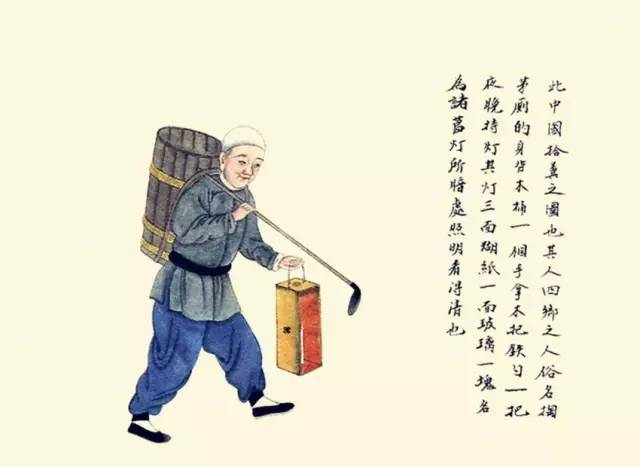 此中國拾糞之圖也其人四鄉之人俗名掏
茅厠的身背木桶一個手拿木把鉄勺一把
夜晚持灯其灯三面糊紙一面玻璃一塊名
為諸葛灯所将處照明看得清也